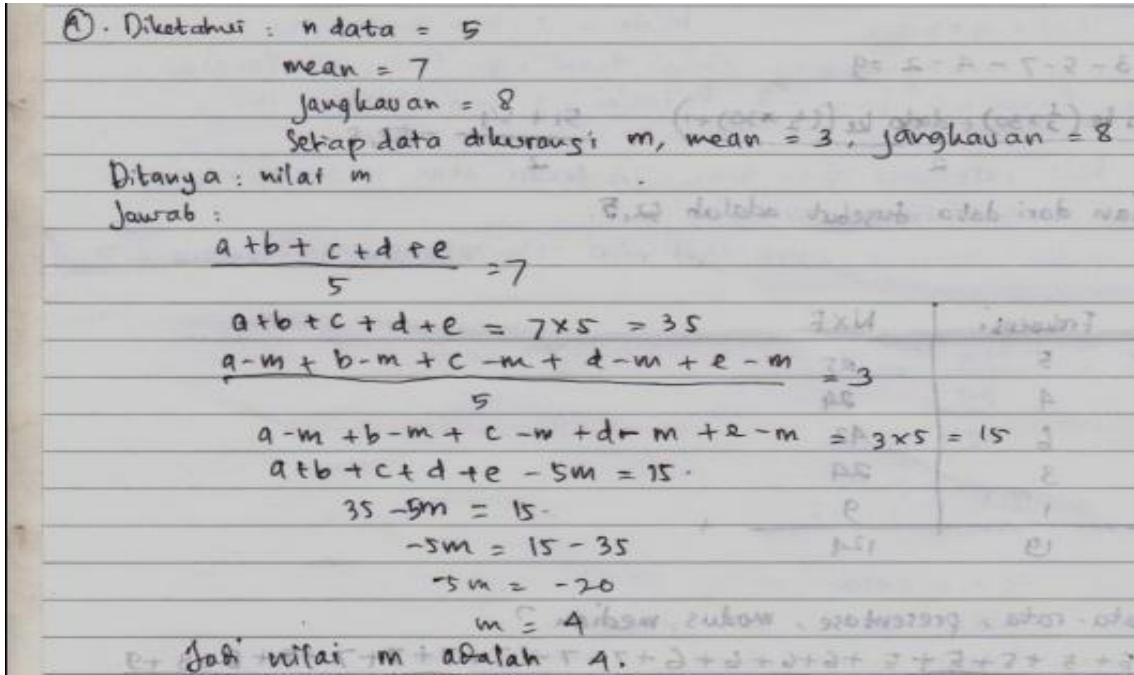 9. Diketahui : n data = 5
mean = 7
Jangkauan = 8
Setiap data dikurangi m, mean = 3, jangkauan = 8
Ditanya : nilai m
Jawab :
a + b + c + d + e
5
= 7
a + b + c + d + e = 7 x 5 = 35
a - m + b - m + c - m + d - m + e - m
5
= 3
a - m + b - m + c - m + d - m + e - m = 3 x 5 = 15
a + b + c + d + e - 5m = 15.
35 - 5m = 15.
-5m = 15 - 35
-5m = -20
m = 4
Jadi nilai m adalah 4.